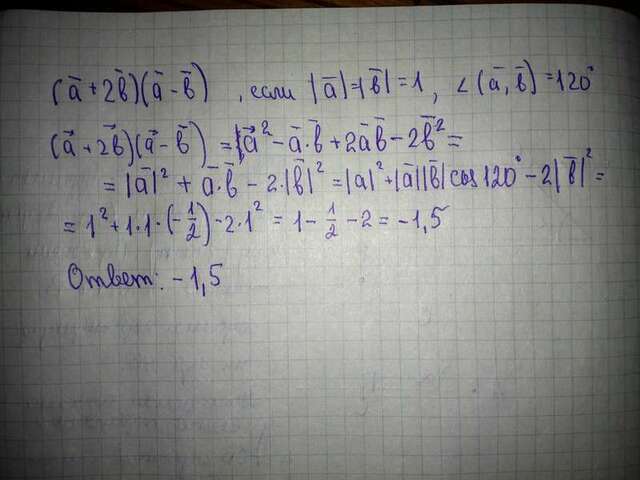 (a̅ + 2b̅)(a̅ - b̅), если |a̅| = |b̅| = 1, ∠(a̅, b̅) = 120°
(a⃗ + 2b⃗)(a⃗ - b⃗) = a⃗² - a̅·b̅ + 2a̅b̅ - 2b̅² =
= |a̅|² + a̅·b̅ - 2·|b̅|² = |a|² + |a̅||b̅| cos 120° - 2|b̅|² =
= 1² + 1·1·(-1/2) - 2·1² = 1 - 1/2 - 2 = -1,5
Ответ: -1,5